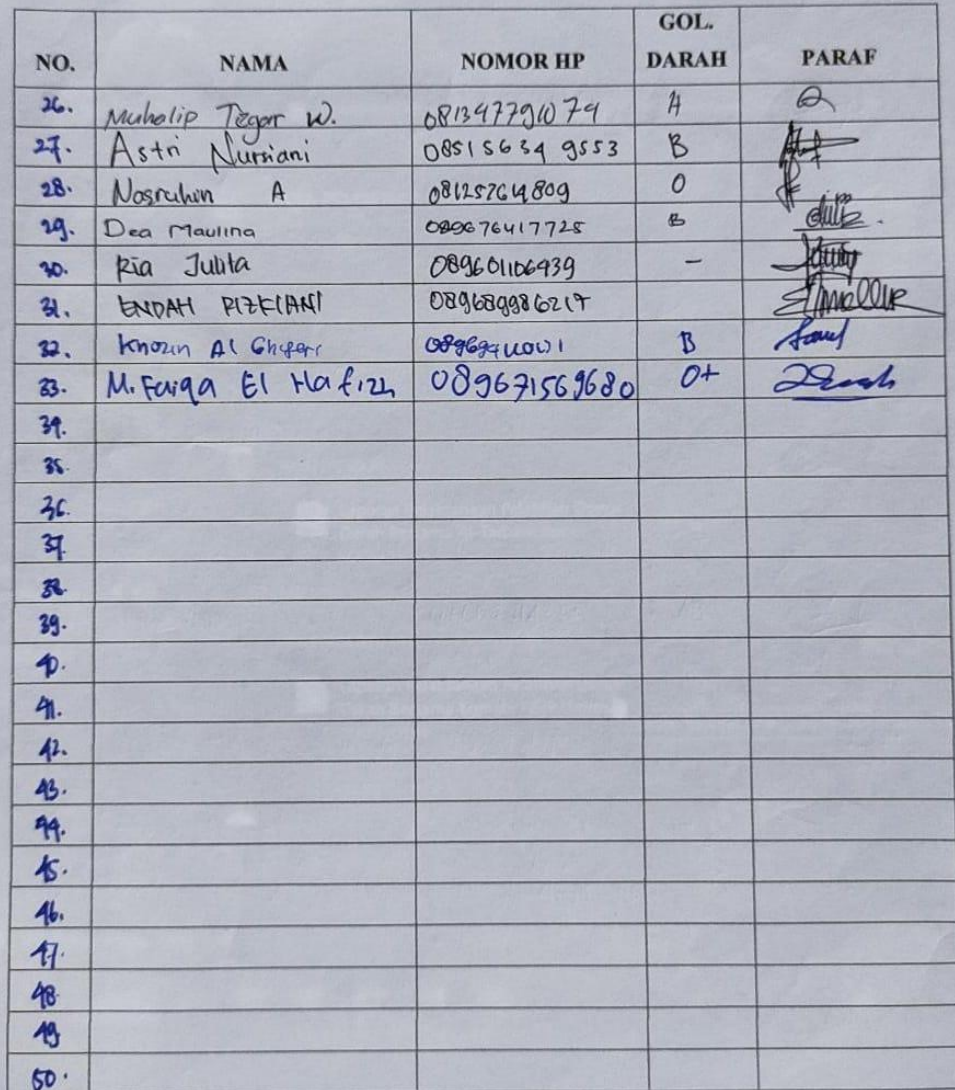 NO. NAMA NOMOR HP GOL. DARAH PARAF
26. Muhalip Tegar W. A
27. Astri Nursiani 08515634 9553 B
28. Nasruhin A 081257614809 O
29. Dea Maulina 089676417725 B
30. Ria Julita 089601106939 -
31. ENDAH RIZKIANI 089689986217
32. Khozin Al Ghifari B
33. M. Faiqa El Hafizh 089671569680 O+
34.
35.
36.
37.
38.
39.
40.
41.
42.
43.
44.
45.
46.
47.
48
49
50.